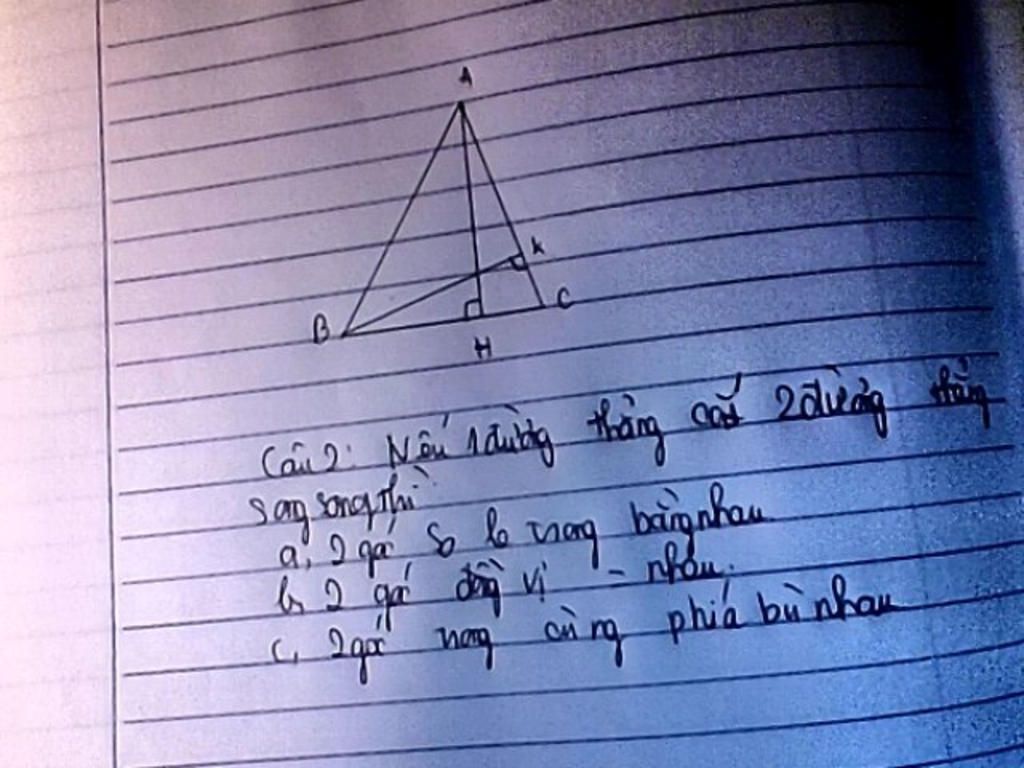 A
K
B
C
H
Câu 2: Nếu 1 đường thẳng cắt 2 đường thẳng
song song thì:
a, 2 góc so le trong bằng nhau
b, 2 góc đồng vị - nhau.
c, 2 góc trong cùng phía bù nhau